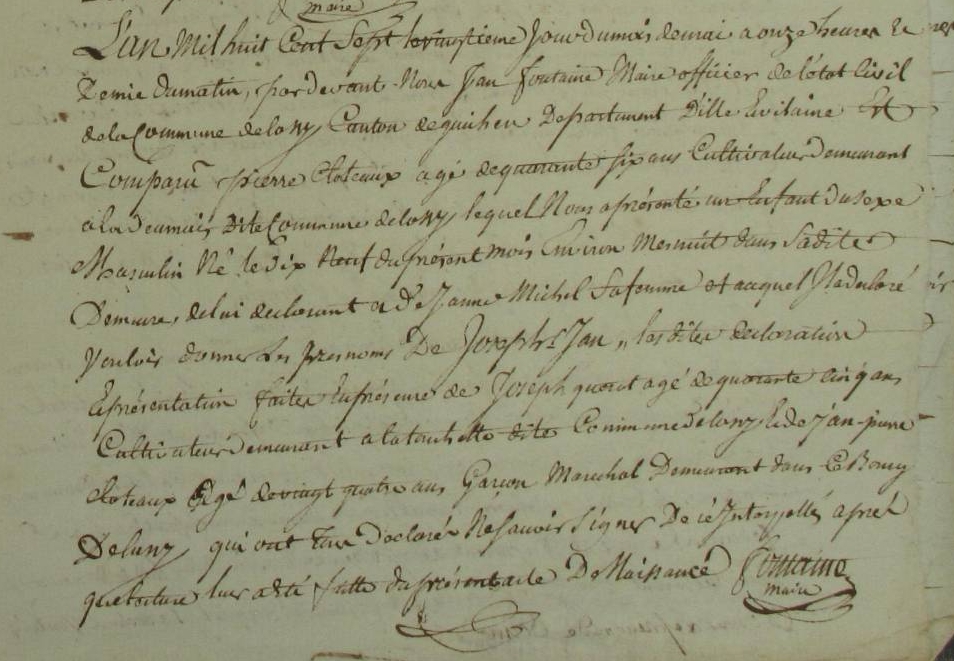 maire
L'an Mil huit Cent Sept le vingtieme Jour du mois de mai a onze heures et
Demie du matin, par devant Nous Jan fontaine Maire officier de l'état Civil
de la Commune de lony Canton de guichen Departement D'ille Evilaine Est
Comparû pierre Cloteaux agé de quarante six ans Cultivateur Demeurant
a la Dite Commune de lony lequel Nous a présenté un Enfant du sexe
Masculin Né le dix Neuf du présent mois Environ Mesnuit dans sa dite
Demeure, de lui declarant et de Janne Michel sa femme et auquel Il a declaré
Vouloir donner les prenoms De Joseph Jan, les dites declaration
Et présentation faites En présence de Joseph agé de quarante Cinq ans
Cultivateur Demeurant a la touchette dite Commune De lony et de Jan pierre
Cloteaux Agé de vingt quatre ans Garçon Marechal Demeurant dans le Bourg
De lony qui ont tous Declaré Ne savoir Signer De ce Interpellés après
que lecture leur a été faitte du présent acte De Naissance
fontaine
maire